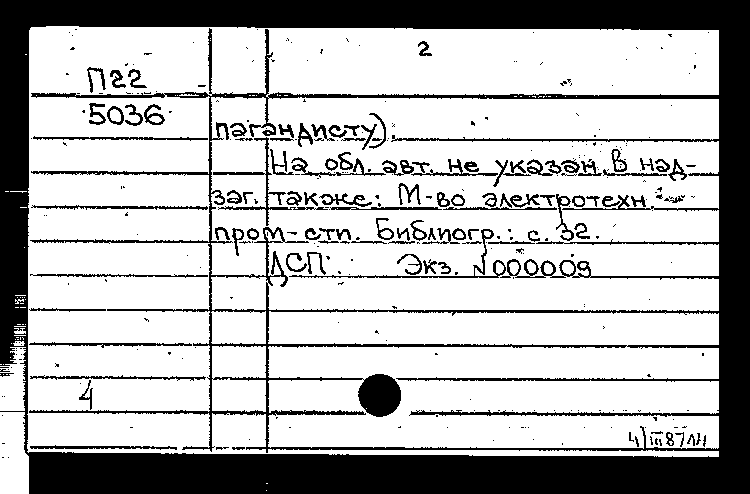 2
П22
5036
пагандисту).
На обл. авт. не указан. В над-
заг. также: М-во электротехн.
пром-сти. Библиогр.: с. 32.
ДСП. Экз. N000009
4